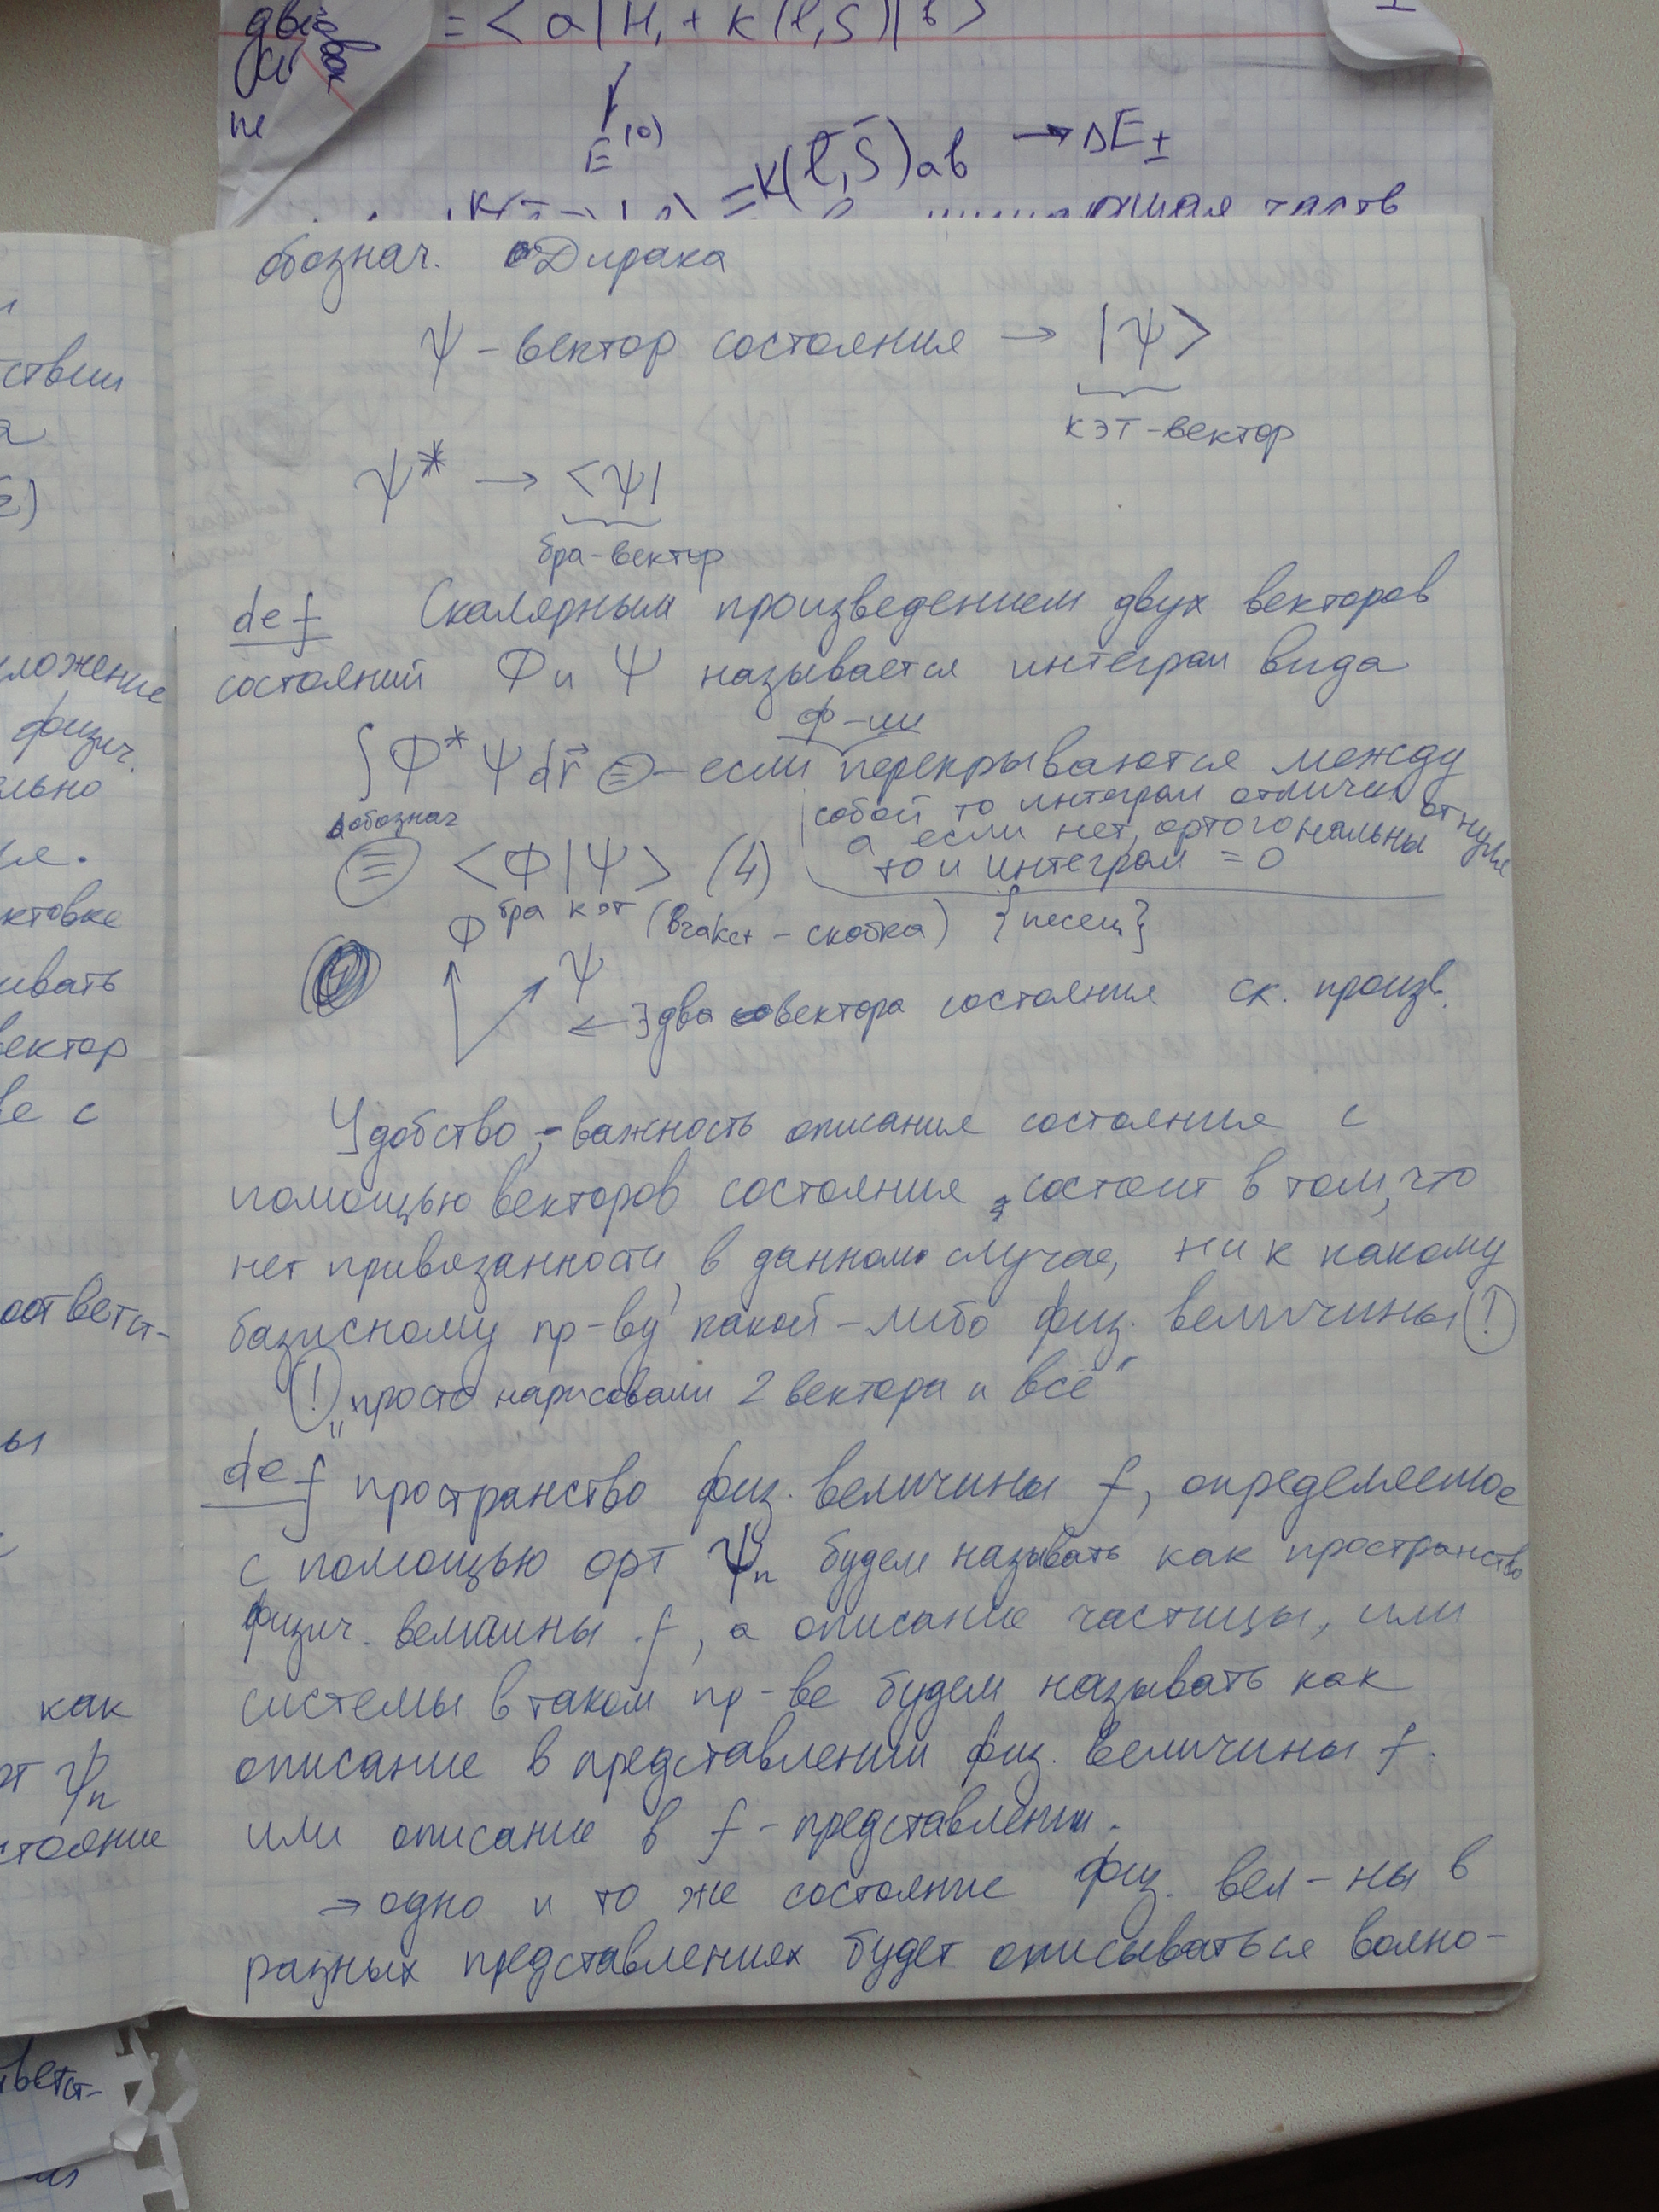 = < a | H₁ + K(l,S) | b >
E⁽⁰⁾
= K(l,S)ab → ΔE±
не
обознач. Дирака
ψ - вектор состояния → |ψ>
кэт-вектор
ψ* → <ψ|
бра-вектор
def Скалярным произведением двух векторов
состояний Ф и Ψ называется интеграл вида
ф-ии
∫ Ф* Ψ dr⃗ ≡ - если перекрываются между
собой то интеграл отличен от нуля
а если нет, ортогональны
то и интеграл = 0
обознач
≡ <Ф|Ψ> (4)
бра кэт ( - скобка) {песец}
Ф
Ψ
← два вектора состояния ск. произв.
Удобство, - важность описания состояния с
помощью векторов состояния, состоит в том, что
нет привязанности, в данном случае, ни к какому
базисному пр-ву какой-либо физ. величины (!)
(!) „просто нарисовали 2 вектора и всё"
def пространство физ. величины f, определяемое
с помощью орт ψn будем называть как пространство
физич. величины f, а описание частицы, или
системы в таком пр-ве будем называть как
описание в представлении физ. величины f.
или описание в f - представлении.
→ одно и то же состояние физ. вел-ны в
разных представлениях будет описываться волно-
ствии
ложение
физич.
льно
ктовке
ивать
ектор
ве с
оответст-
ы
как
от ψn
стояние
тветст-